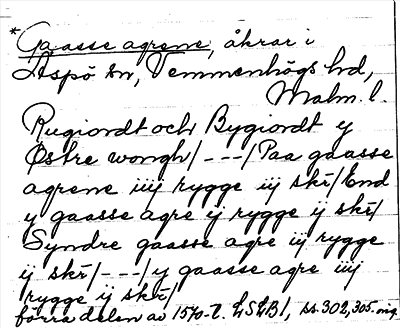 *Gaasse agrene, åkrar i
Äspö sn, Vemmenhögs hd,
Malm. l.
Rugiordt och Bygiordt y
Østre wongh/---/Paa gaasse
agrene iiij rygge iij skr/End
y gaasse agre ij rygge ij skr/
Syndre gaasse agre iij rygge
ij skr/---/y gaasse agre iiij
rygge ij skr/
förra delen av 1570-t. LSLB1, ss. 302, 305.